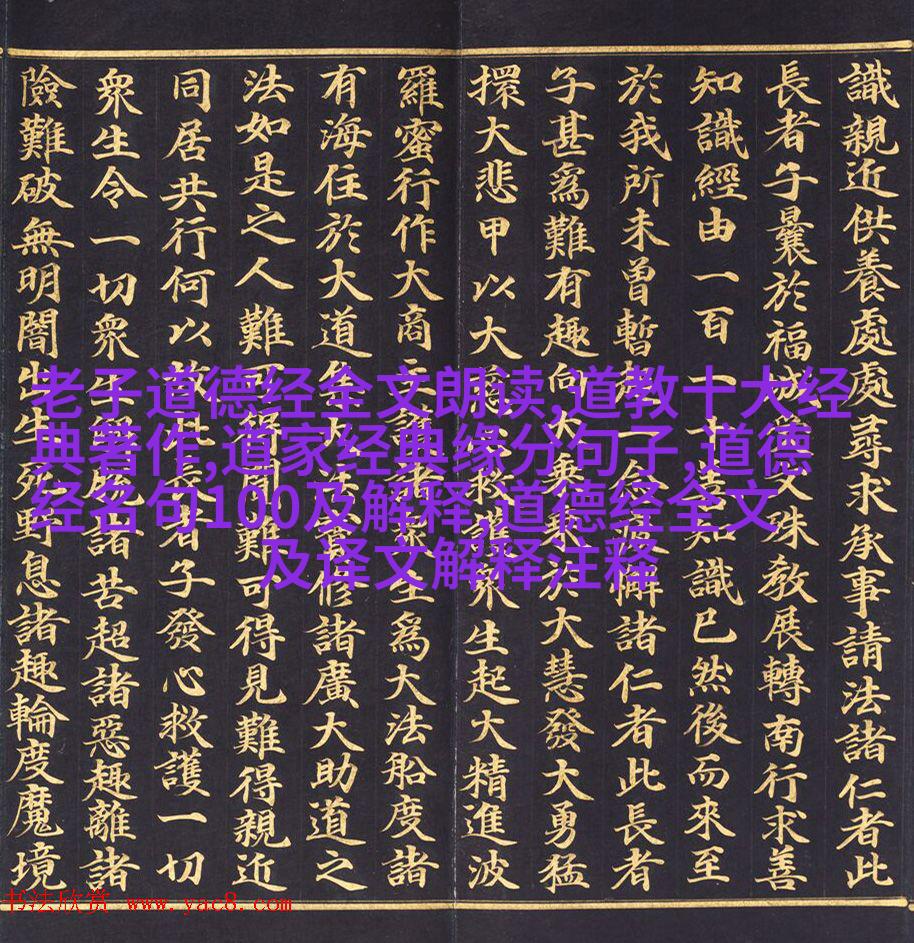 識親近供養處處尋求承事請法諸仁者此
長者子曩於福城文殊教展轉南行求善
知識經由一百一十善知識已然後而來至
於我所未曾暫起一念疲懈諸仁者此長者
子甚爲難有趣向大乘乘於大慧發大勇猛
擐大悲甲以大救護眾生起大精進波
羅蜜行作大商主護諸眾生爲大法船度諸
有海住於大道大修諸廣大助道之
法如是之人難可得聞難可得見難得親近
同居共行何以故此長者子發心救護一切
眾生令一切眾生諸苦超諸惡趣離諸
險難破無明闇出生死野息諸趣輪度魔境
老子道德经全文朗读,道教十大经
典著作,道家经典缘分句子,道德
经名句100及解释,道德经全文
及译文解释注释
书法欣赏 www.yac8.com